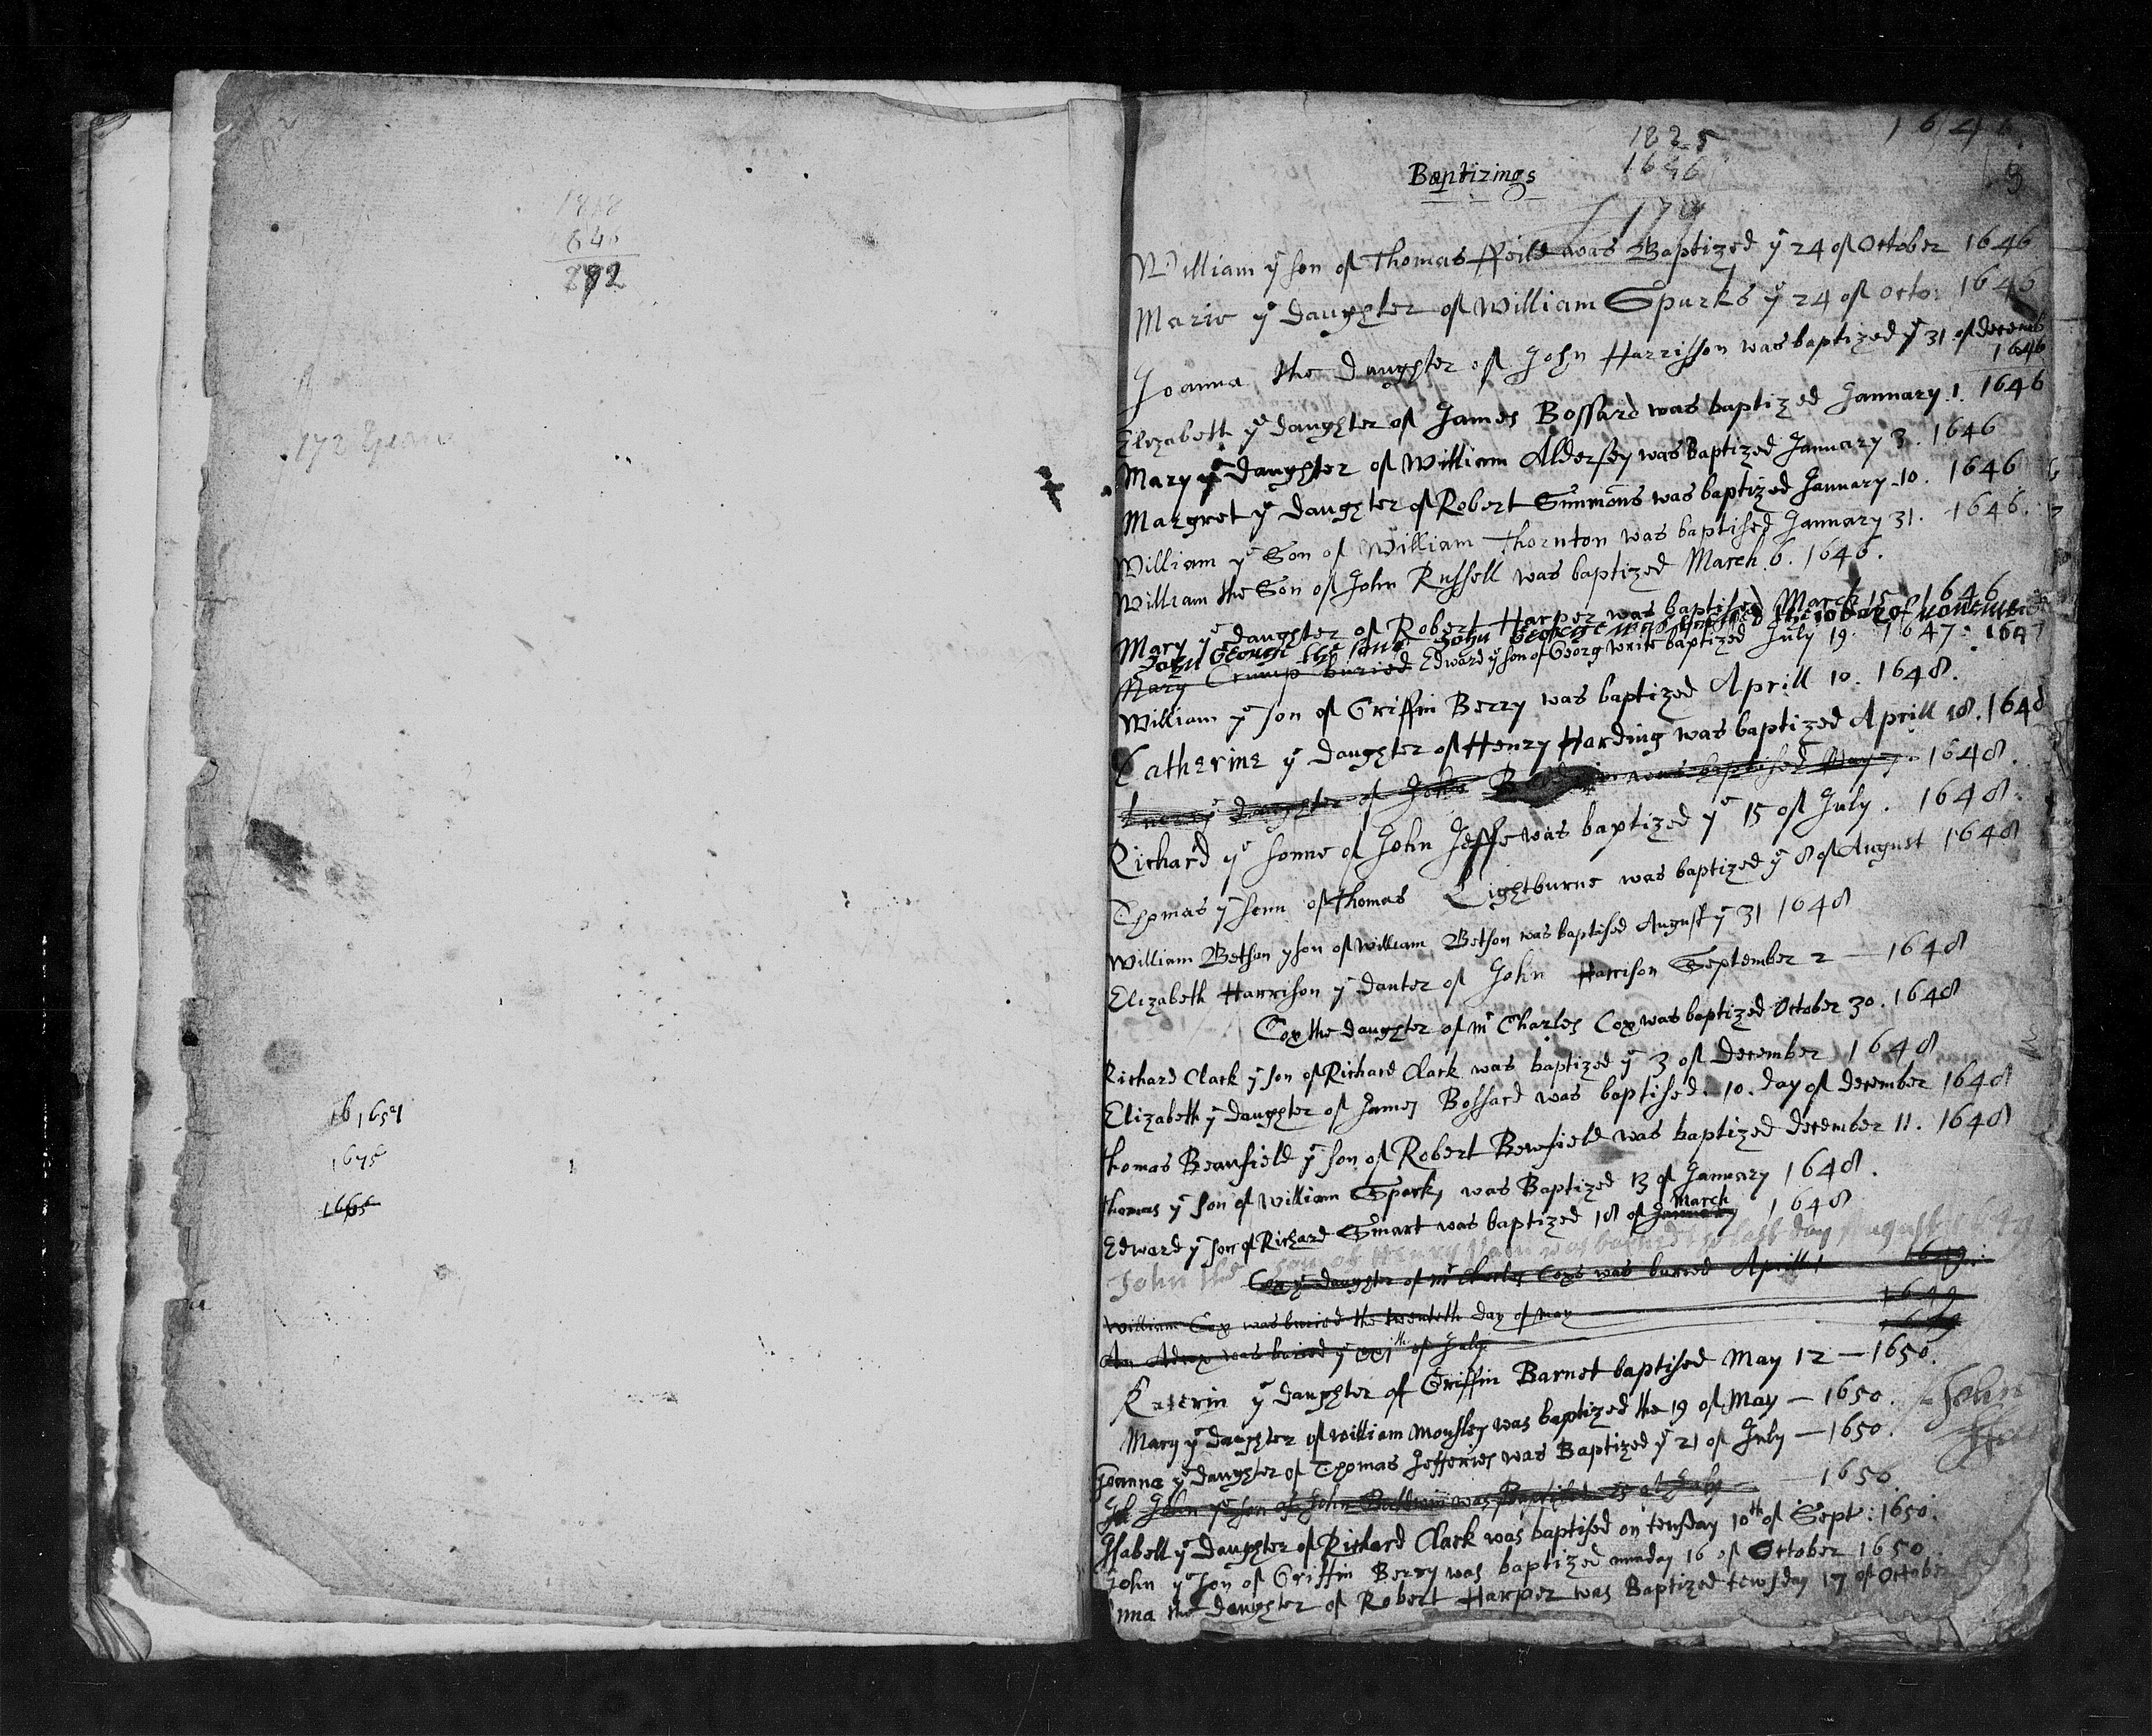 1818
646
292
172 years
16 1651
1675
1665
1646.
1825
1646
179
3
Baptizings
William yͤ son of Thomas ffeild was Baptized yͤ 24 of October 1646
Marie yͤ daughter of William Spurks yͤ 24 of Octo: 1646
Joanna the daughter of John Harrisson was baptized yͤ 31 of decemb
1646
Elizabeth yͤ daughter of James Bossard was baptized January 1. 1646
Mary yͤ daughter of William Aldersey was Baptized January 3. 1646
Margret yͤ daughter of Robert Simmons was baptized January 10. 1646
William yͤ Son of William Thornton was baptised January 31. 1646.
William the Son of John Russell was baptized March 6. 1646.
Mary yͤ daughter of Robert Harper was baptised March 15 1646
John George the sone John George was the 10 day of november 1647
Mary Crump buried Edward yͤ son of Georg write baptized July 19. 1647.
William yͤ son of Griffin Berry was baptized Aprill 10. 1648.
Catherine yͤ daughter of Henry Harding was baptized Aprill 18. 1648
yͤ daughter of John was baptised May 7. 1648.
Richard yͤ sonne of John Jeffe was baptized yͤ 15 of July. 1648.
Thomas yͤ sonn of Thomas Lightburne was baptized yͤ 8 of August 1648
William Betson y son of William Betson was baptised August yͤ 31 1648
Elizabeth Harrison yͤ danter of John Harrison September 2 — 1648
Cox the daughter of mr Charles Cox was baptized October 30. 1648
Richard Clark y son of Richard Clark was baptized yͤ 3 of December 1648
Elizabeth yͤ daughter of James Bossard was baptised. 10. day of december 1648
Thomas Beanfield yͤ son of Robert Benefield was baptized december 11. 1648
Thomas yͤ son of William Sparks was Baptized 13 of January 1648.
Edward yͤ son of Richard Smart was baptized 18 of January March 1648
John the son of Henry was the last day August
Cox yͤ daughter of mr Charles Coxs was buried Aprill 1 1649.
William Cox was buried the twentith day of may 1649
An was buried yͤ of July 1649
Katerin yͤ daughter of Griffin Barnet baptised May 12 — 1650.
Mary yͤ daughter of William Mousley was baptized the 19 of May — 1650. John
Joanna yͤ daughter of Thomas Jefferies was Baptized yͤ 21 of July — 1650.
John yͤ son of John Baldwin was Baptised 25 of July 1650.
Isabell yͤ daughter of Richard Clark was baptised on teusday 10th of Sept: 1650.
John yͤ son of Griffin Berry was baptized munday 16 of October 1650
nna the daughter of Robert Harper was Baptized tewsday 17 of October